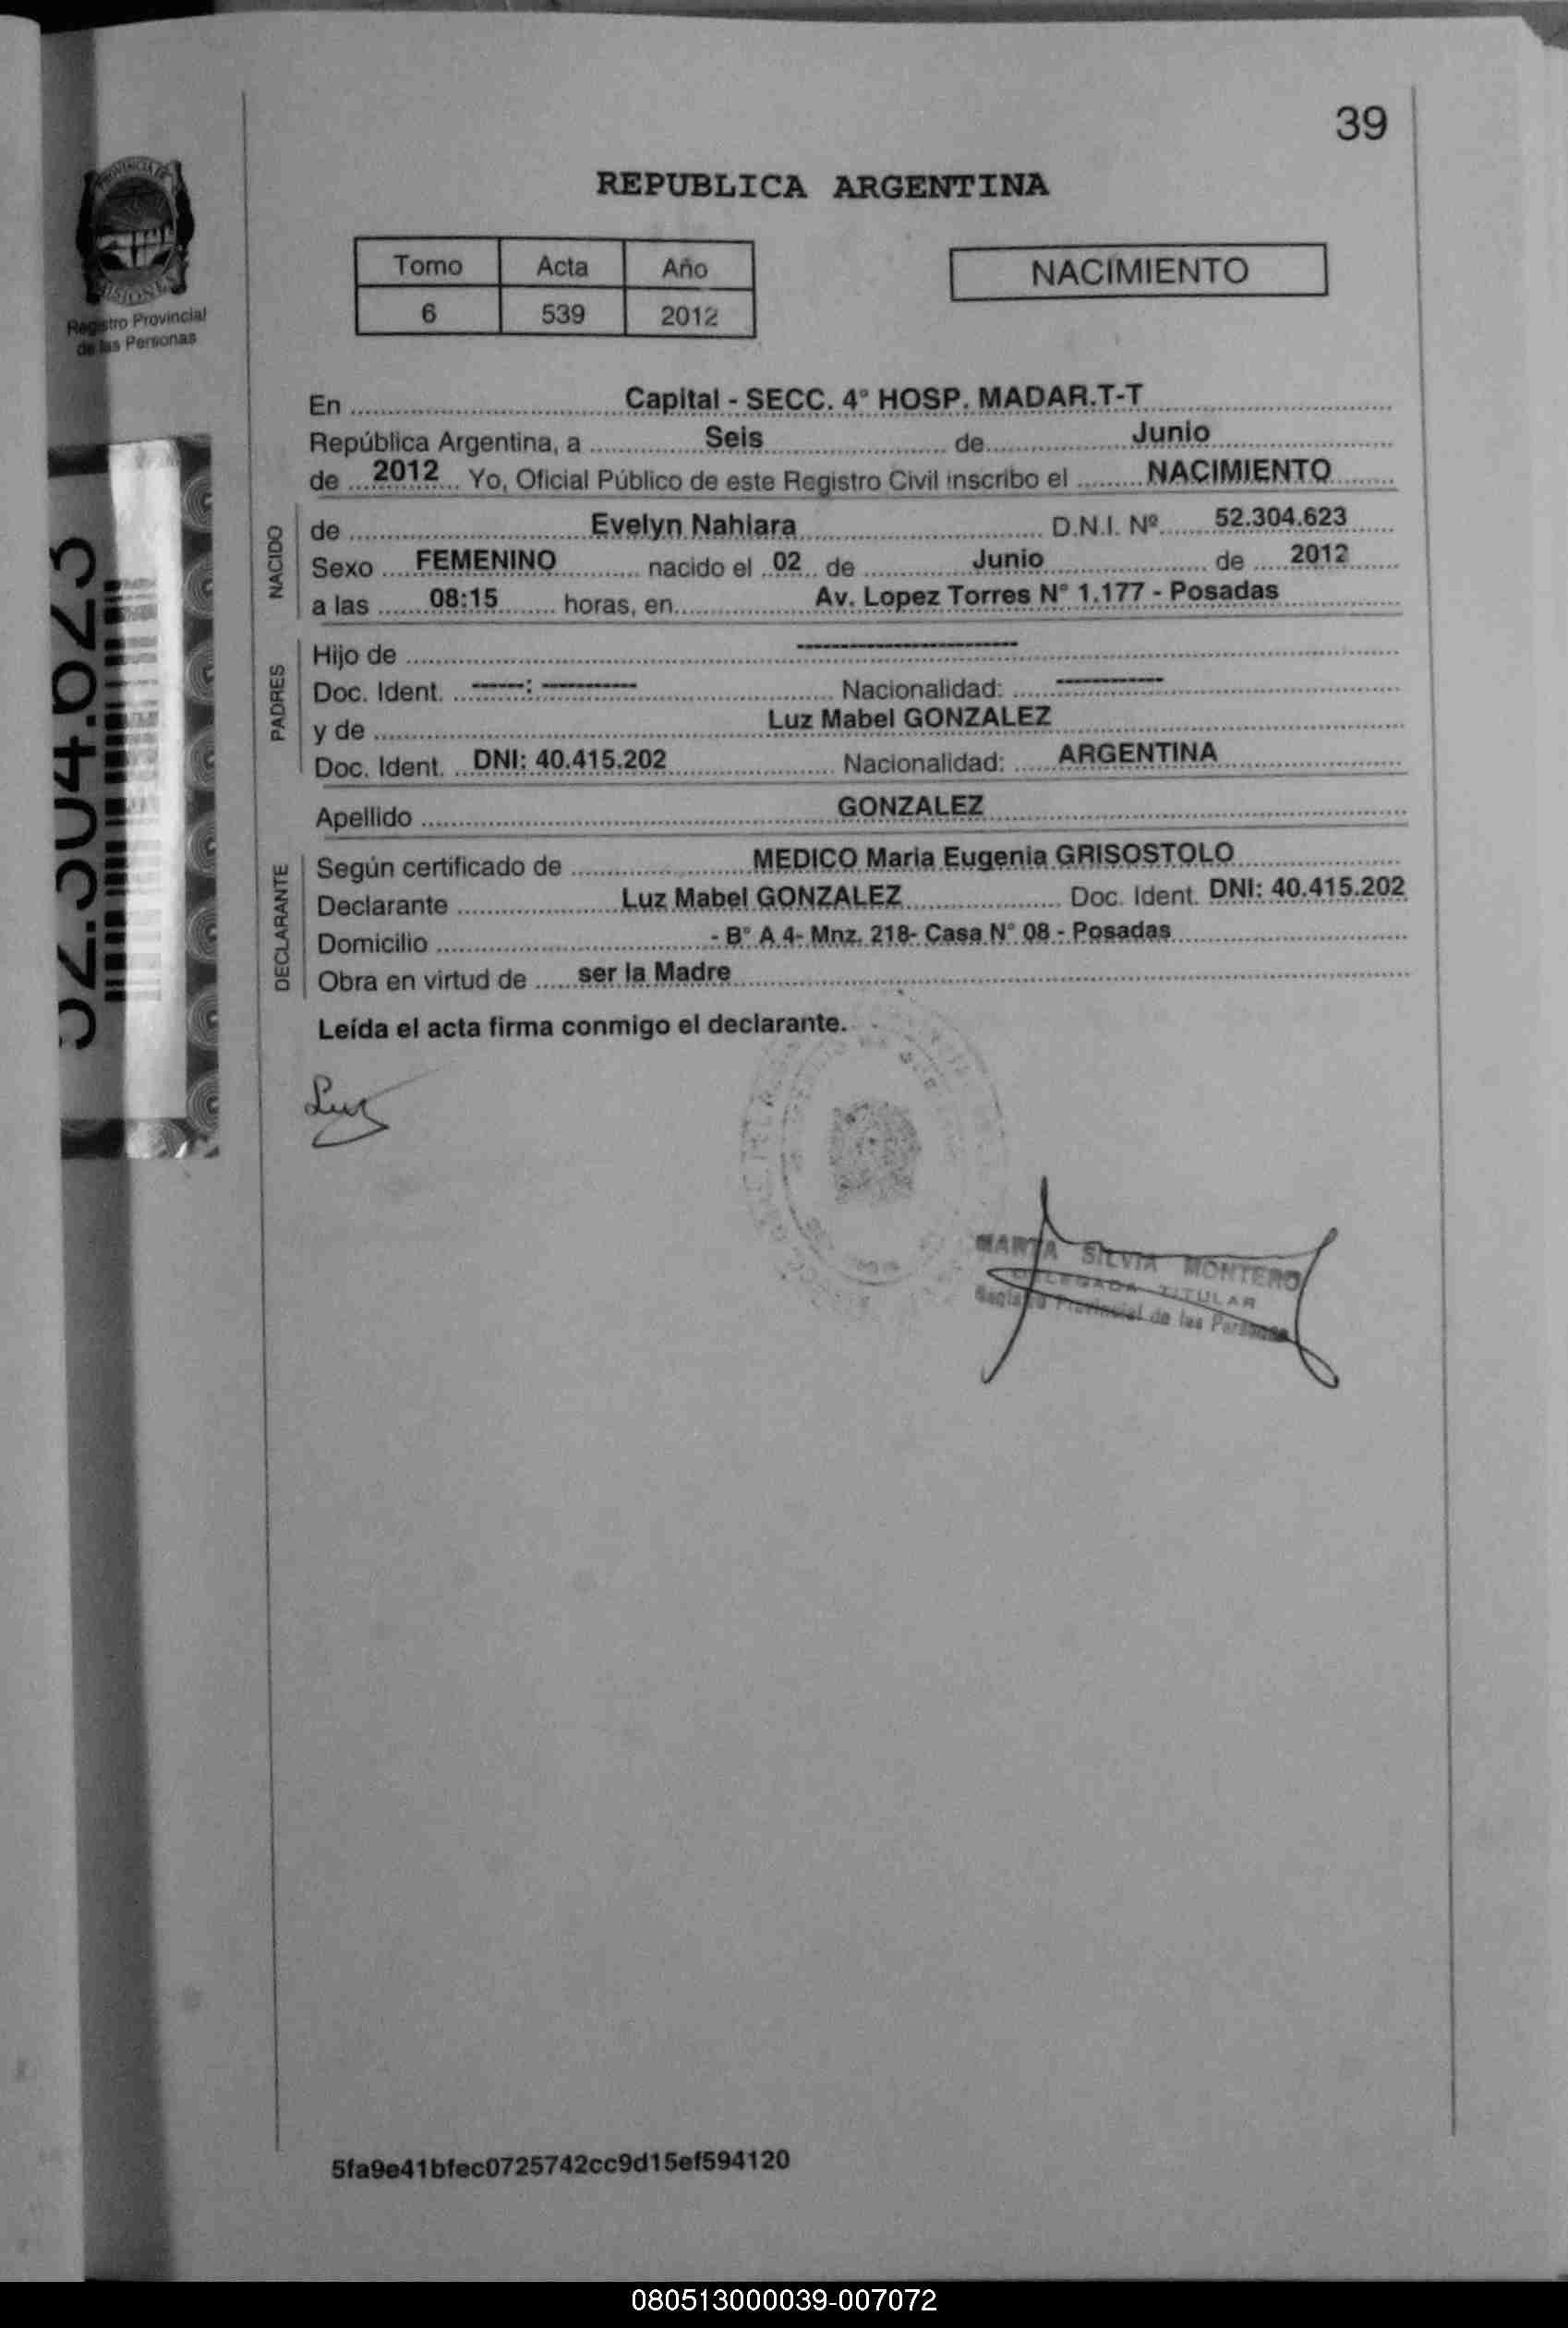 39
REPUBLICA ARGENTINA
PROVINCIA DE
MISIONES
Registro Provincial
de las Personas
Tomo Acta Año
6 539 2012
NACIMIENTO
En Capital - SECC. 4° HOSP. MADAR.T-T
República Argentina, a Seis de Junio
de 2012 Yo, Oficial Público de este Registro Civil inscribo el NACIMIENTO
NACIDO
de Evelyn Nahiara D.N.I. Nº 52.304.623
Sexo FEMENINO nacido el 02 de Junio de 2012
a las 08:15 horas, en Av. Lopez Torres N° 1.177 - Posadas
PADRES
Hijo de ----------
Doc. Ident. -----: ---------- Nacionalidad: ----------
y de Luz Mabel GONZALEZ
Doc. Ident. DNI: 40.415.202 Nacionalidad: ARGENTINA
Apellido GONZALEZ
DECLARANTE
Según certificado de MEDICO Maria Eugenia GRISOSTOLO
Declarante Luz Mabel GONZALEZ Doc. Ident. DNI: 40.415.202
Domicilio - B° A 4- Mnz. 218- Casa N° 08 - Posadas
Obra en virtud de ser la Madre
Leída el acta firma conmigo el declarante.
Luz
MARTA SILVIA MONTERO
DELEGADA TITULAR
Registro Provincial de las Personas
52.304.623
5fa9e41bfec0725742cc9d15ef594120
080513000039-007072